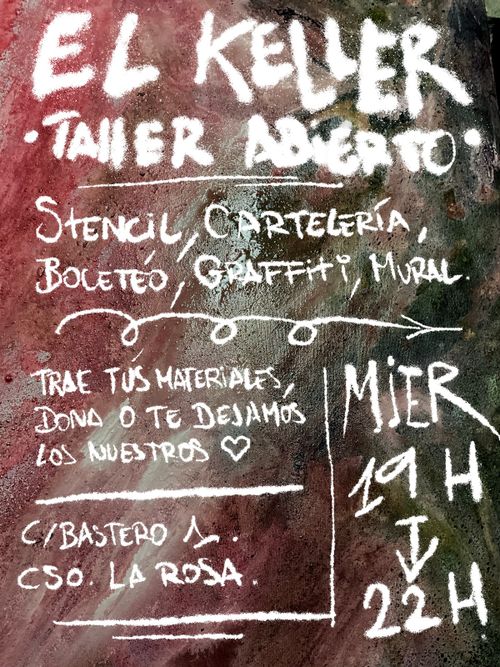 EL KELLER
·TALLER ABIERTO·
STENCIL, CARTELERÍA,
BOLETEO, GRAFFITI, MURAL.
TRAE TUS MATERIALES,
DONA O TE DEJAMOS
LOS NUESTROS ♡
C/BASTERO 1.
CSO. LA ROSA.
MIER
19 H
↓
22 H.